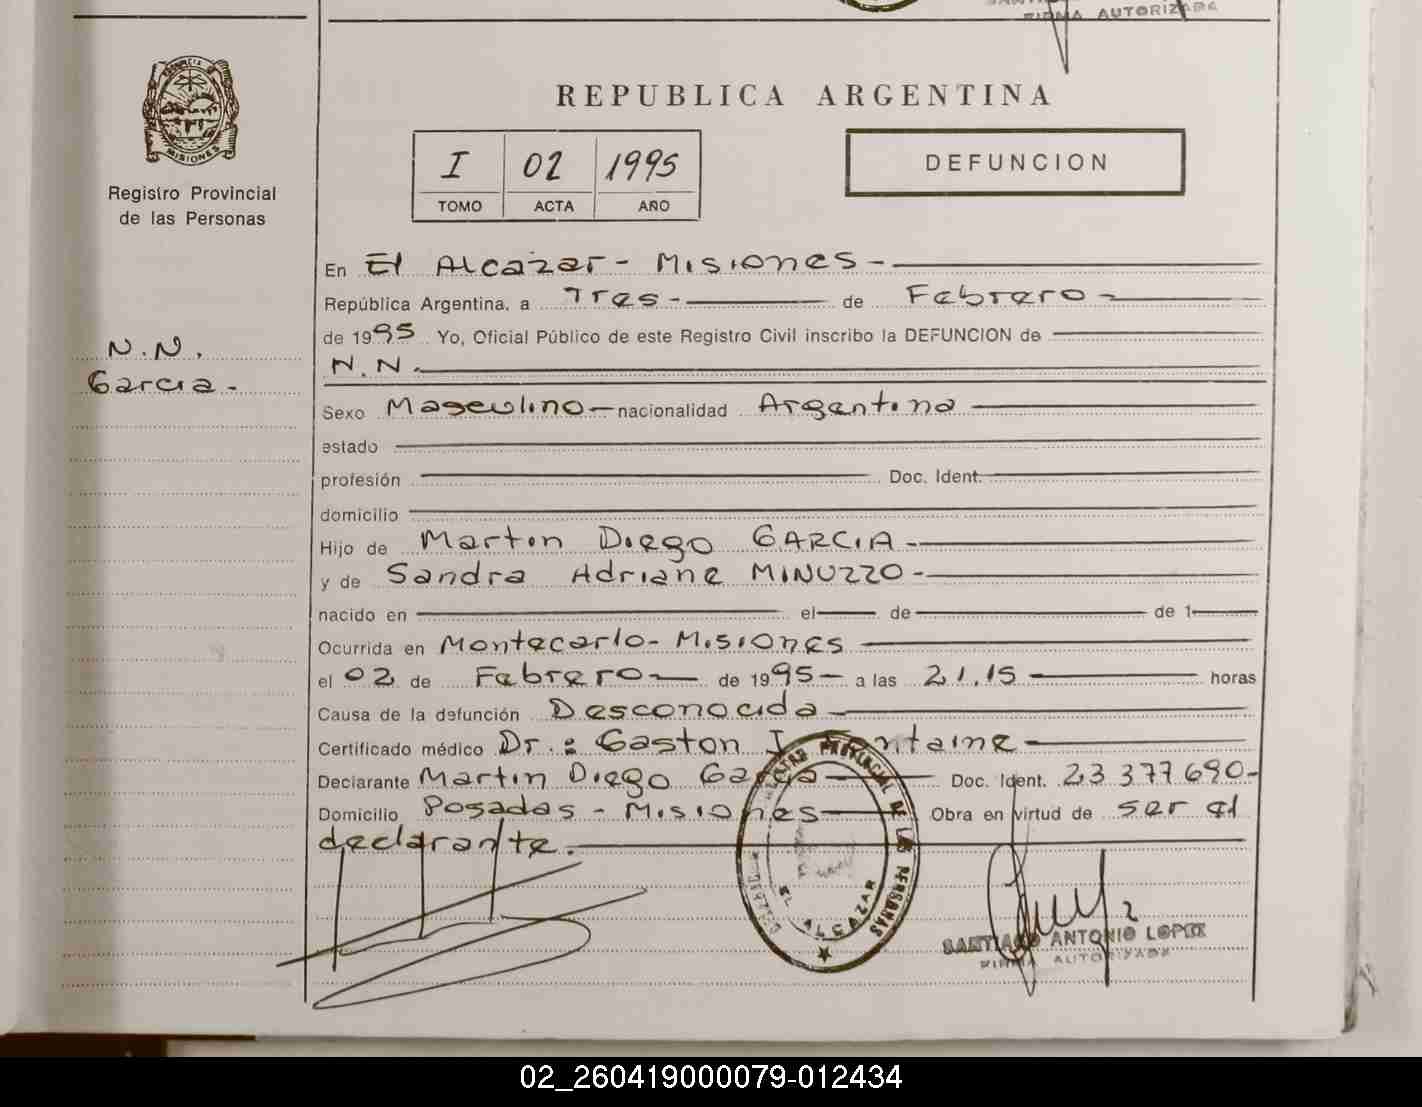 FIRMA AUTORIZADA
PROVINCIA DE
MISIONES
Registro Provincial
de las Personas
REPUBLICA ARGENTINA
I 02 1995
TOMO ACTA AÑO
DEFUNCION
N.N.
Garcia-
En El Alcazar- Misiones-
República Argentina, a Tres- de Febrero-
de 1995 Yo, Oficial Público de este Registro Civil inscribo la DEFUNCION de
N.N.
Sexo Masculino- nacionalidad Argentina
estado
profesión Doc. Ident.
domicilio
Hijo de Martin Diego GARCIA-
y de Sandra Adriane MINUZZO-
nacido en el de de 1
Ocurrida en Montecarlo- Misiones
el 02 de Febrero- de 1995- a las 21.15 horas
Causa de la defunción Desconocida-
Certificado médico Dr.: Gaston I. Fontaine-
Declarante Martin Diego Garcia- Doc. Ident. 23 377 690-
Domicilio Posadas - Misiones- Obra en virtud de ser el
declarante.
REGISTRO PROVINCIAL DE LAS PERSONAS
EL ALCAZAR
SANTIAGO ANTONIO LOPEZ
FIRMA AUTORIZADA
02_260419000079-012434